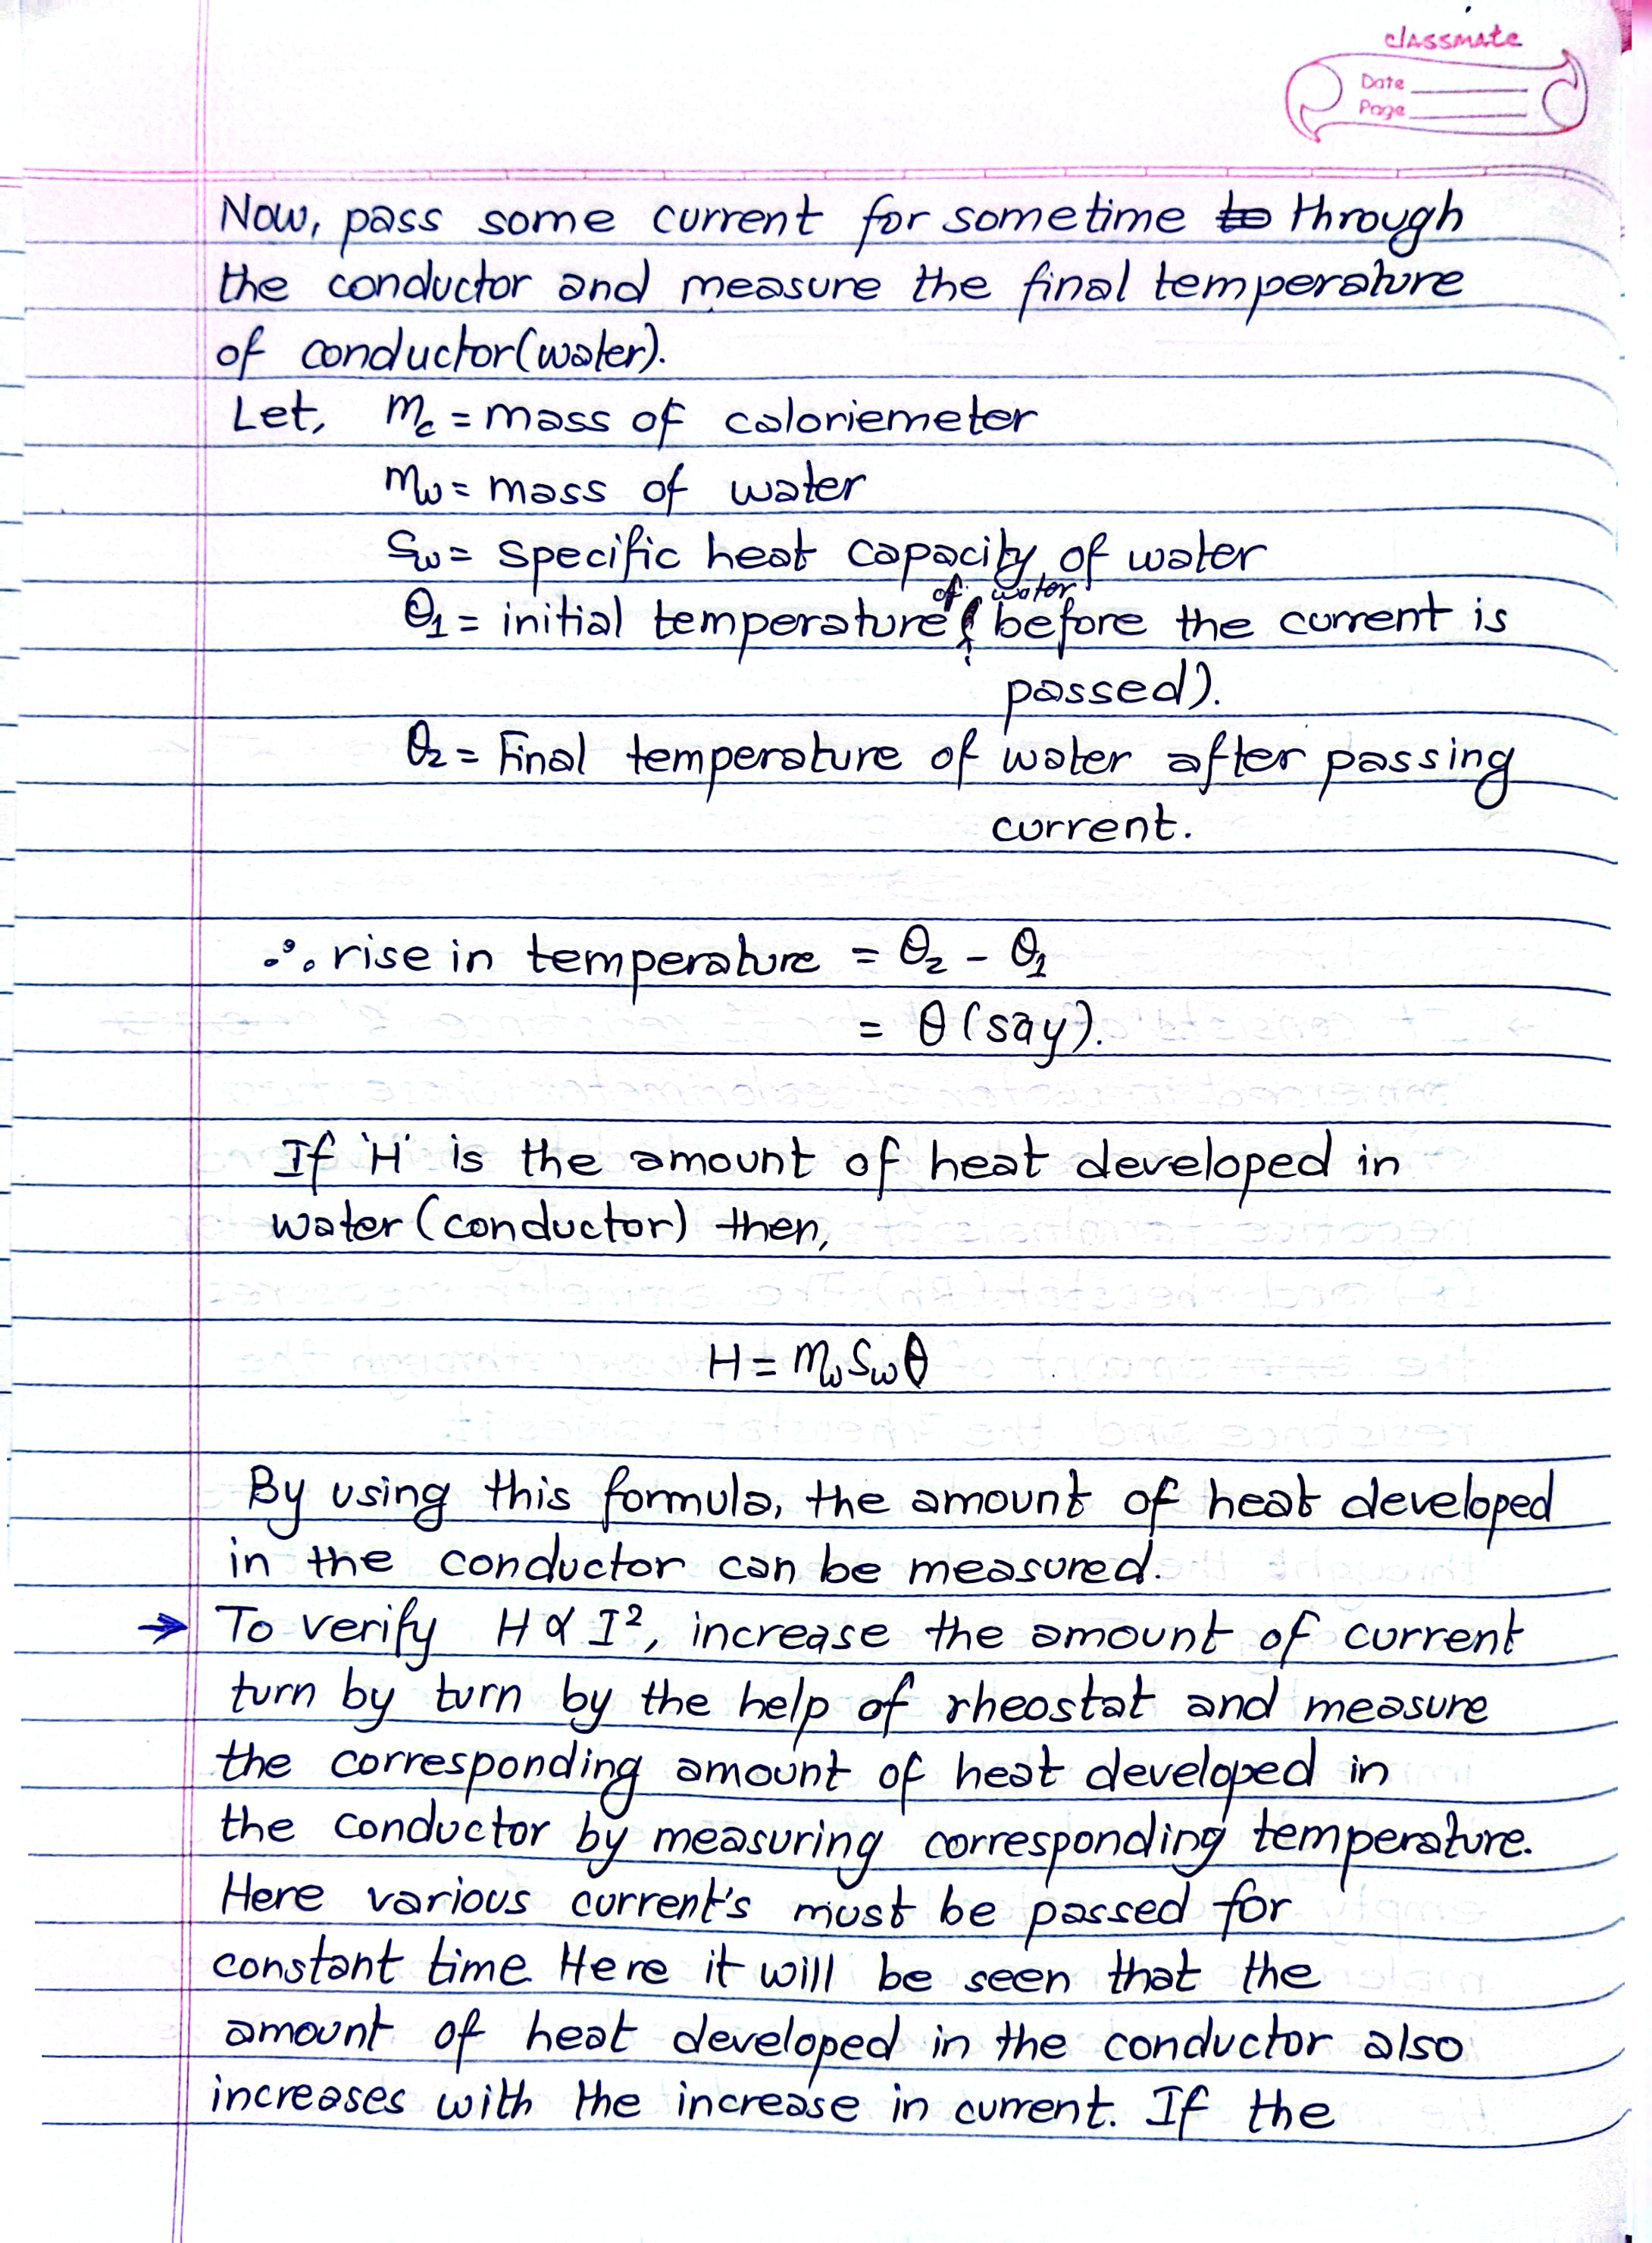 classmate
Date
Page
Now, pass some current for sometime to through
the conductor and measure the final temperature
of conductor(water).
Let, mc = mass of caloriemeter
mw = mass of water
Sw = specific heat capacity of water
of water
θ1 = initial temperature ( before the current is
passed).
θ2 = Final temperature of water after passing
current.
∴ rise in temperature = θ2 - θ1
= θ (say).
If 'H' is the amount of heat developed in
water (conductor) then,
H = mwSwθ
By using this formula, the amount of heat developed
in the conductor can be measured.
→ To verify H ∝ I², increase the amount of current
turn by turn by the help of rheostat and measure
the corresponding amount of heat developed in
the conductor by measuring corresponding temperature.
Here various current's must be passed for
constant time. Here it will be seen that the
amount of heat developed in the conductor also
increases with the increase in current. If the